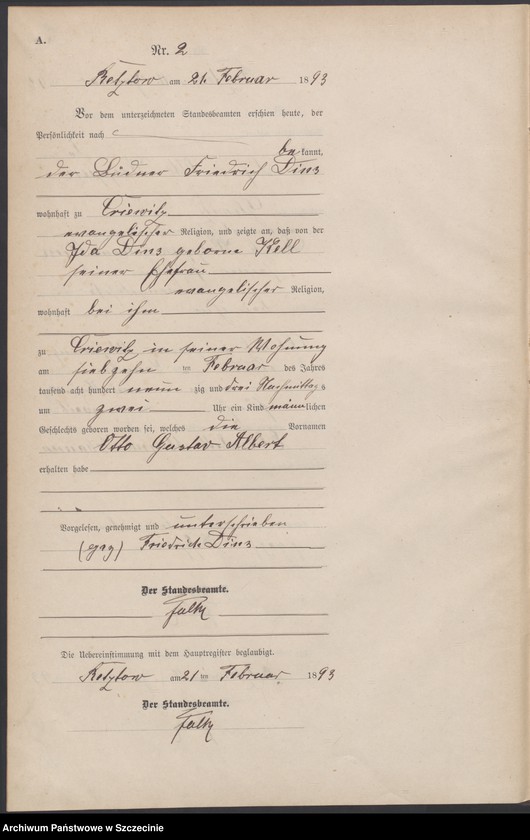 A.
Nr. 2
Retztow am 21. Februar 1893
Vor dem unterzeichneten Standesbeamten erschien heute, der
Persönlichkeit nach
bekannt,
der Büdner Friedrich Dins
wohnhaft zu Criewitz
evangelischer Religion, und zeigte an, daß von der
Ida Dins geborne Kell
seiner Ehefrau
evangelischer Religion,
wohnhaft bei ihm
zu Criewitz in seiner Wohnung
am siebzehn ten Februar des Jahres
tausend acht hundert neun zig und drei Nachmittags
um zwei Uhr ein Kind männlichen
Geschlechts geboren worden sei, welches die Vornamen
Otto Gustav Albert
erhalten habe
Vorgelesen, genehmigt und unterschrieben
(gez) Friedrich Dins
Der Standesbeamte.
Falk
Die Uebereinstimmung mit dem Hauptregister beglaubigt.
Retztow am 21 ten Februar 1893
Der Standesbeamte.
Falk
Archiwum Państwowe w Szczecinie